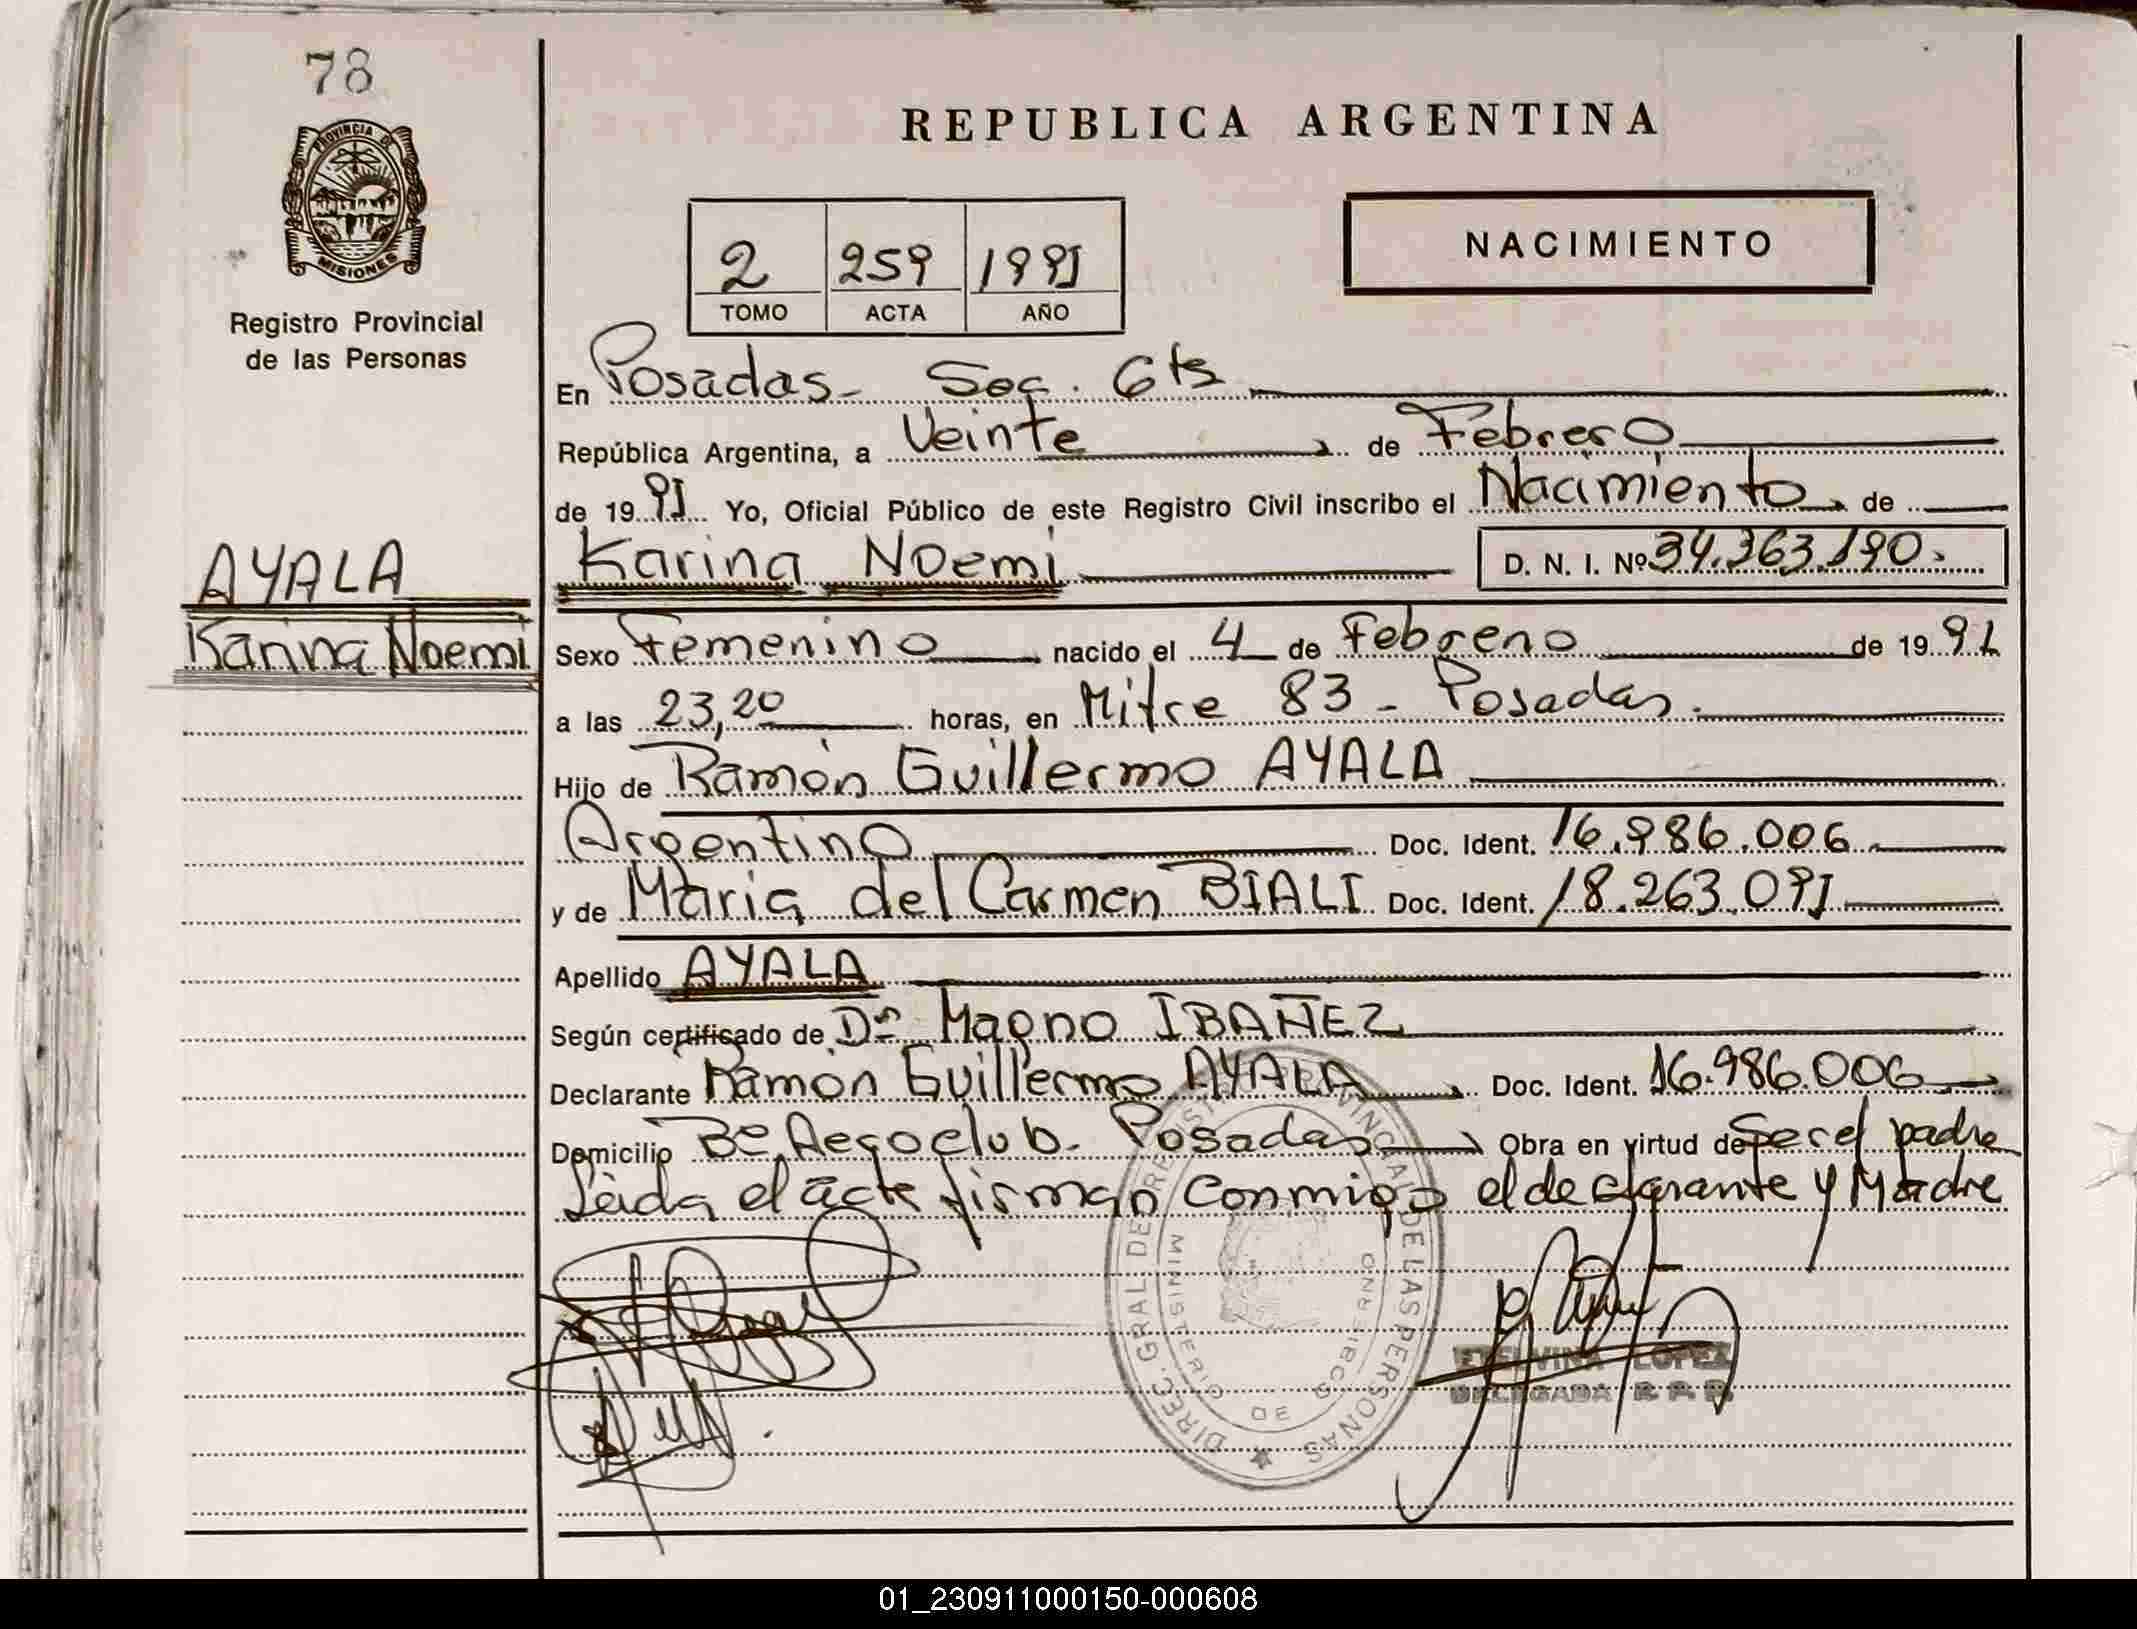 78
PROVINCIA DE
MISIONES
Registro Provincial
de las Personas
REPUBLICA ARGENTINA
2 259 1991
TOMO ACTA AÑO
NACIMIENTO
En Posadas - Sec. 6ta
República Argentina, a Veinte de Febrero
de 1991 Yo, Oficial Público de este Registro Civil inscribo el Nacimiento de
AYALA
Karina Noemi
Karina Noemi D. N. I. Nº 34.363.190
Sexo Femenino nacido el 4 de Febrero de 1991
a las 23,20 horas, en Mitre 83 - Posadas.
Hijo de Ramón Guillermo AYALA
Argentino Doc. Ident. 16.986.006
y de Maria del Carmen BIALI Doc. Ident. 18.263.091
Apellido AYALA
Según certificado de Dr. Magno IBAÑEZ
Declarante Ramon Guillermo AYALA Doc. Ident. 16.986.006
Domicilio Bº Aeroclub. Posadas Obra en virtud de Ser el padre
Leida el acta firman conmigo el declarante y Madre
DIREC. GRAL DE REGISTRO PROVINCIAL DE LAS PERSONAS
MINISTERIO DE GOBIERNO
ETELVINA LOPEZ
DELEGADA R. P. P.
01_230911000150-000608